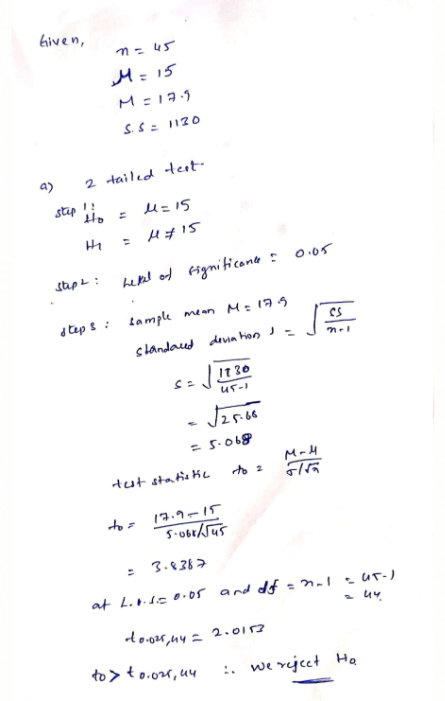 Given,
n = 45
μ = 15
M = 17.9
S.S = 1130
a) 2 tailed test.
step 1: H0 = μ = 15
H1 = μ ≠ 15
step 2: Level of significance = 0.05
step 3: sample mean M = 17.9
standared deviation s = √(SS/n-1)
s = √(1130/45-1)
= √25.68
= 5.068
test statistic t0 = M-μ/s/√n
t0 = 17.9-15/5.068/√45
= 3.8387
at L.o.s = 0.05 and df = n-1 = 45-1
= 44.
t0.025,44 = 2.0153
t0 > t0.025,44 ∴ we reject Ho